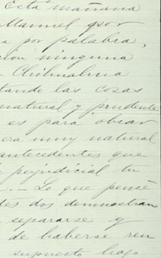 Esta mañana
Manuel que
por palabra,
ninguna
Chihuahua
tando las cosas
natural y prudente
es para obrar
era muy natural
antecedentes que
perjudicial tu
Lo que pensé
tes dos demuestran
separarse y
de haberse reu
supuesto bajo